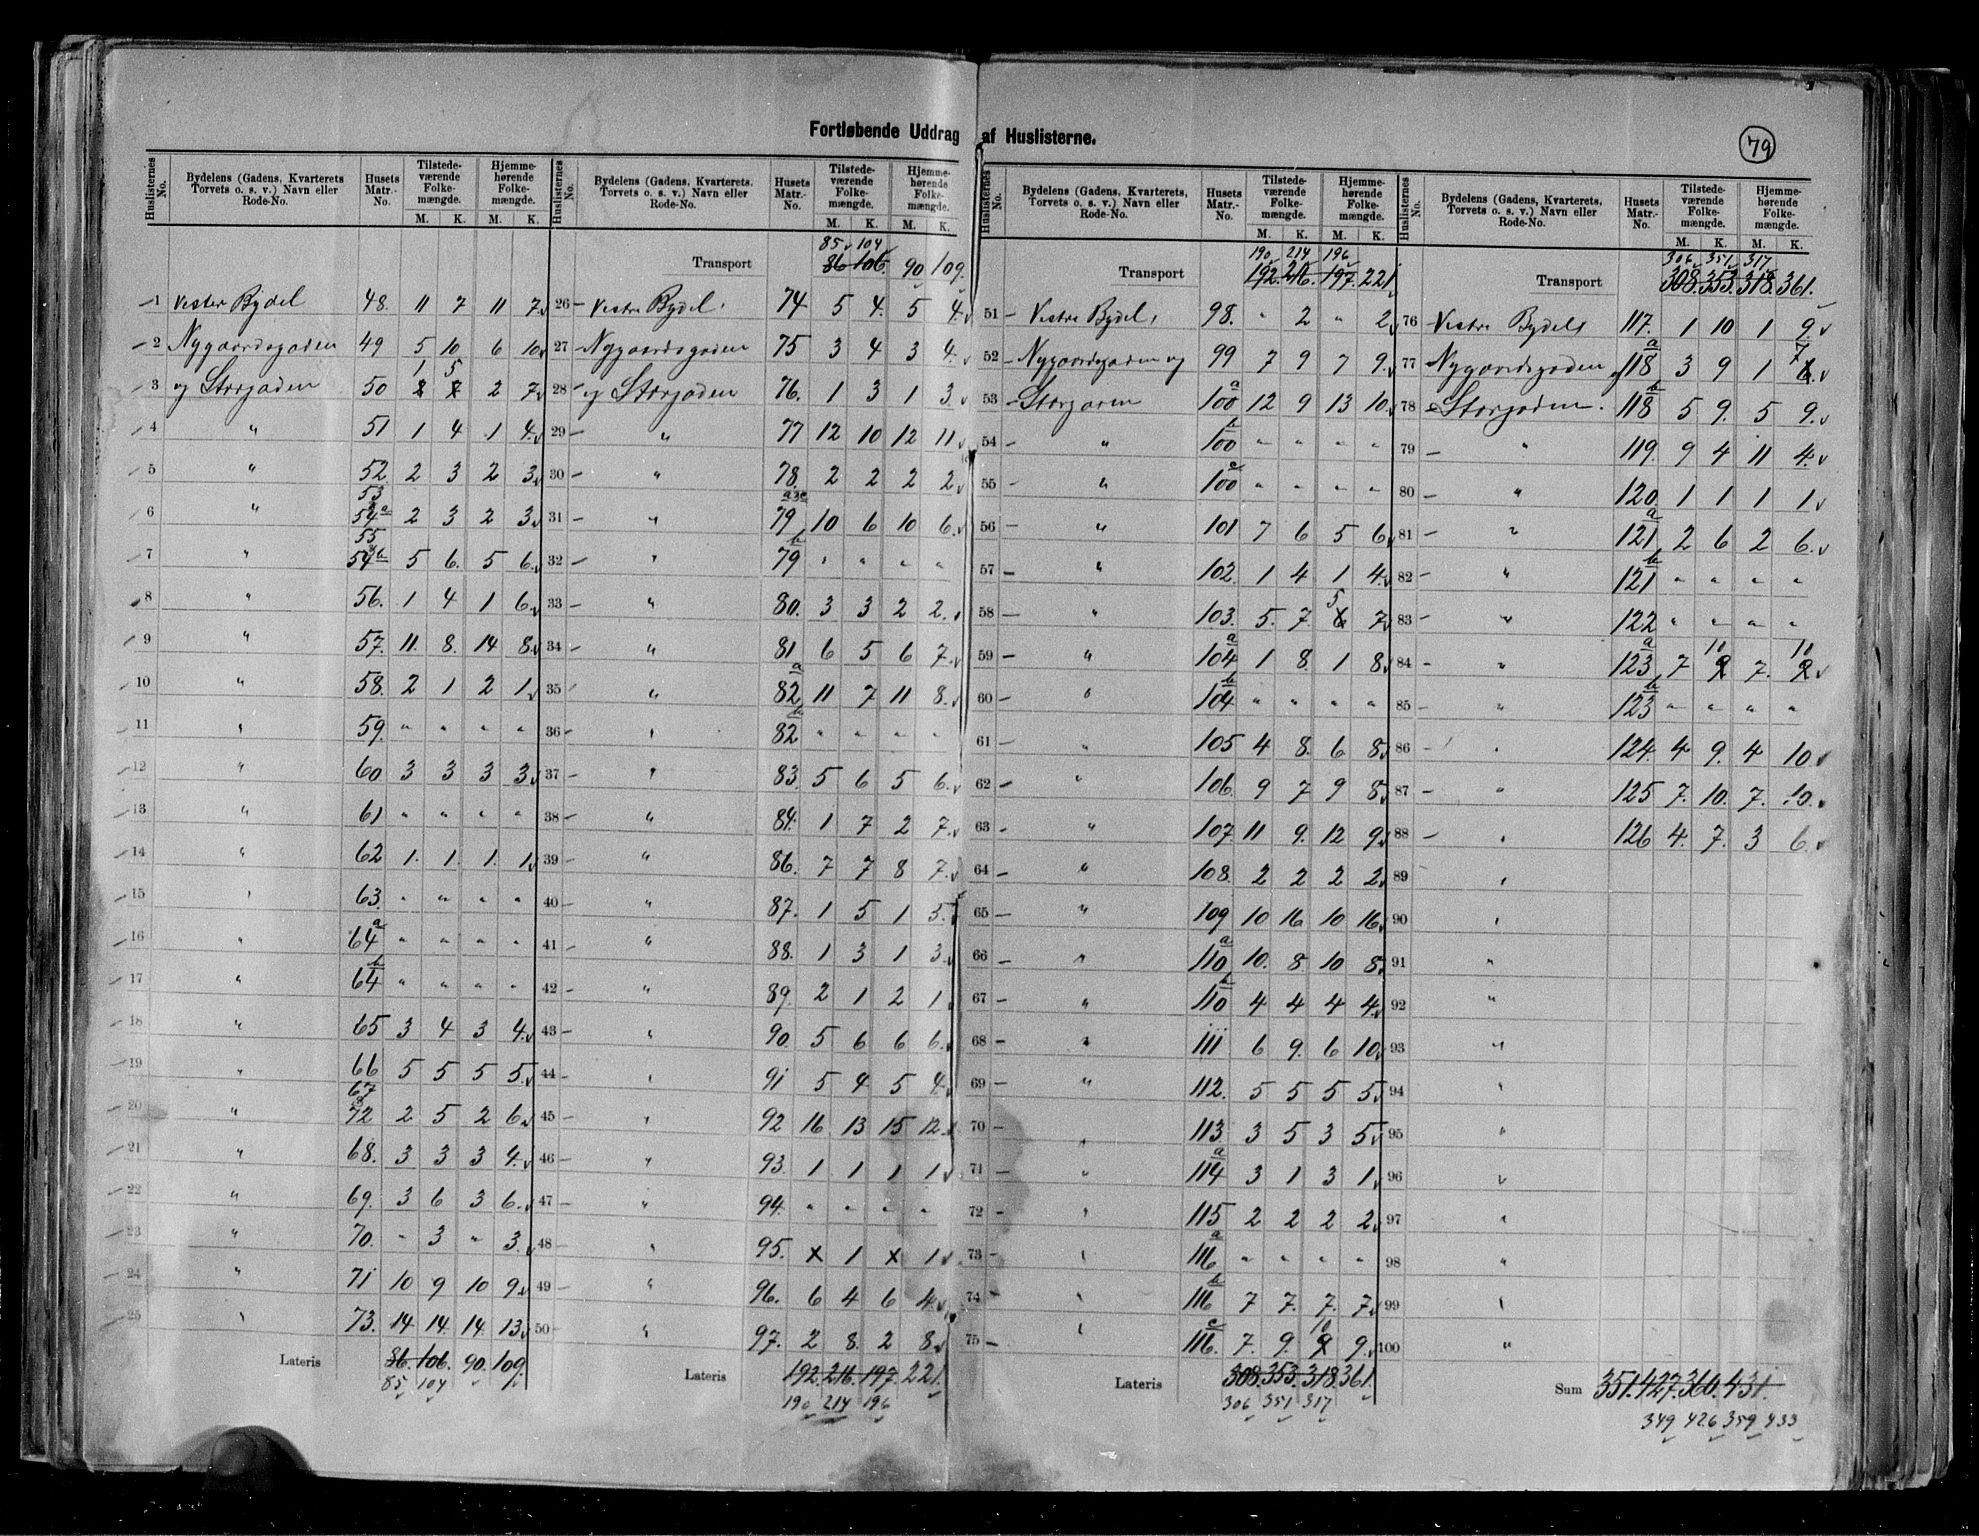 Fortløbende Uddrag af Huslisterne.
79
Huslisternes No. Bydelens (Gadens, Kvarterets Torvets o. s. v.) Navn eller Rode-No. Husets Matr.-No. Tilstede-værende Folke-mængde. M. K. Hjemme-hørende Folke-mængde. M. K.
1 Vester Bydel 48. 11 7 11 7
2 Nygaardsgaden 49 5 10 6 10
3 og Storgaden 50 1 5 2 7
4 " 51 1 4 1 4
5 " 52 2 3 2 3
6 " 53 54a 2 3 2 3
7 " 55 54b 5 6. 5 6
8 " 56. 1 4 1 6
9 " 57. 11. 8. 14 8
10 " 58. 2 1 2 1
11 " 59. " " " "
12 " 60 3 3 3 3
13 " 61 " " " "
14 " 62 1. 1. 1. 1
15 " 63. " " " "
16 " 64a " " " "
17 " 64b " " " "
18 " 65 3 4 3 4
19 " 66 5 5 5 5
20 " 67 72 2 5 2 6
21 " 68. 3 3 3 4
22 " 69. 3 6 3 6
23 " 70. " 3 " 3
24 " 71 10 9 10 9
25 " 73. 14 14. 14 13
Lateris 86. 106. 90. 109.
85 104
Huslisternes No. Bydelens (Gadens, Kvarterets. Torvets o. s. v.) Navn eller Rode-No. Husets Matr.-No. Tilstede-værende Folke-mængde. M. K. Hjemme-hørende Folke-mængde. M. K.
85 104
Transport 86 106. 90 109.
26 Vestre Bydel 74 5 4. 5 4
27 Nygaardsgaden 75 3 4 3 4
28 og Storgaden 76. 1 3 1 3
29 " 77 12 10 12 11
30 " 78. 2 2 2 2
31 " 79 10 6 10 6
32 " 79b " " " "
33 " 80. 3 3 2 2
34 " 81 6 5 6 7
35 " 82a 11 7 11 8
36 " 82b " " " "
37 " 83. 5 6 5 6
38 " 84. 1 7 2 7
39 " 86. 7 7 8 7
40 " 87. 1 5 1 5
41 " 88. 1 3 1 3
42 " 89. 2 1 2 1
43 " 90. 5 6 6 6
44 " 91 5 4 5 4
45 " 92 16 13 15 12
46 " 93. 1 1 1 1
47 " 94. " " " "
48 " 95. x 1 x 1
49 " 96. 6 4 6 4
50 " 97. 2 8. 2 8
Lateris 192. 216. 197. 221.
190 214 196
Huslisternes No. Bydelens (Gadens, Kvarterets, Torvets o. s. v.) Navn eller Rode-No. Husets Matr.-No. Tilstede-værende Folke-mængde. M. K. Hjemme-hørende Folke-mængde. M. K.
190 214 196
Transport 192. 216. 197. 221
51 Vestre Bydel 98. " 2 " 2
52 Nygaardsgaden og 99 7 9 7 9
53 Storgaden 100a 12 9 13 10
54 " 100b " " " "
55 " 100c " " " "
56 " 101 7 6 5 6
57 " 102. 1 4 1 4
58 " 103. 5. 7. 5 7
59 " 104a 1 8. 1 8
60 " 104b " " " "
61 " 105 4 8. 6 8
62 " 106. 9 7 9 8
63 " 107. 11 9. 12 9
64 " 108. 2 2 2 2
65 " 109 10 16 10 16
66 " 110a 10. 8 10 8
67 " 110b 4 4 4 4
68 " 111 6 9. 6 10
69 " 112. 5 5 5 5
70 " 113. 3 5 3 5
71 " 114a 3 1 3 1
72 " 115 2 2 2 2
73 " 116a " " " "
74 " 116b 7 7. 7. 7
75 " 116c 7. 9. 10 9
Lateris 308. 353. 318. 361.
306 351 317
Huslisternes No. Bydelens (Gadens, Kvarterets, Torvets o. s. v.) Navn eller Rode-No. Husets Matr.-No. Tilstede-værende Folke-mængde. M. K. Hjemme-hørende Folke-mængde. M. K.
306 351 317
Transport 308. 353. 318. 361.
76 Vestre Bydels 117. 1 10 1 9
77 Nygaardsgaden og 118a 3 9 1 7
78 Storgaden. 118b 5 9. 5 9
79 " 119. 9 4 11 4
80 " 120. 1 1 1 1
81 " 121a 2 6 2 6
82 " 121b " " " "
83 " 122 " " " "
84 " 123a 7 10 7. 10
85 " 123b " " " "
86 " 124. 4 9. 4 10
87 " 125 7. 10. 7. 10
88 " 126 4. 7. 3 6
89 "
90 "
91 "
92 "
93 "
94 "
95 "
96 "
97 "
98 "
99 "
100 "
Sum 351. 427. 360. 431.
349 426 359 433